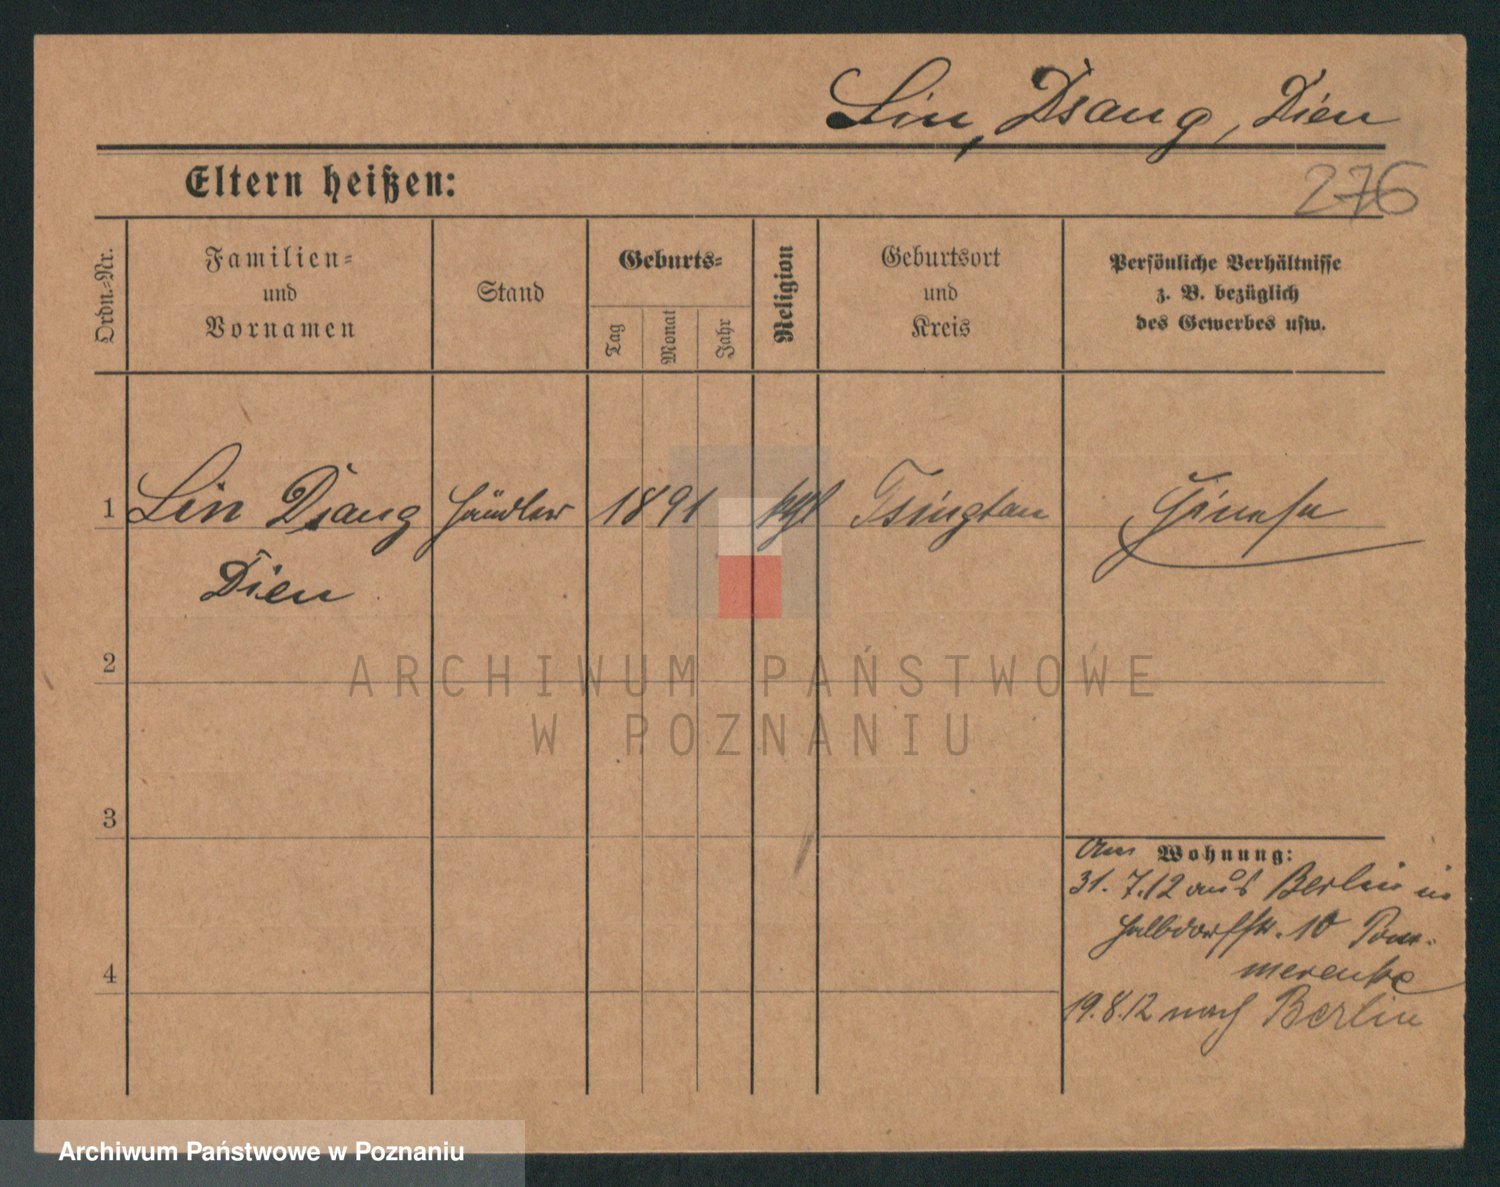 Lin, Dsang, Dien
Eltern heißen:
276
Ordn.-Nr.
Familien-
und
Vornamen
Stand
Geburts-
Tag
Monat
Jahr
Religion
Geburtsort
und
Kreis
Persönliche Verhältnisse
z. B. bezüglich
des Gewerbes usw.
1 Lin Dsang Händler 1891 Tsingtau Chinese
Dien
2
3
4
Am Wohnung:
31.7.12 aus Berlin in
Halbdorfstr. 10 Pom-
merenke
19.8.12 nach Berlin
ARCHIWUM PAŃSTWOWE
W POZNANIU
Archiwum Państwowe w Poznaniu